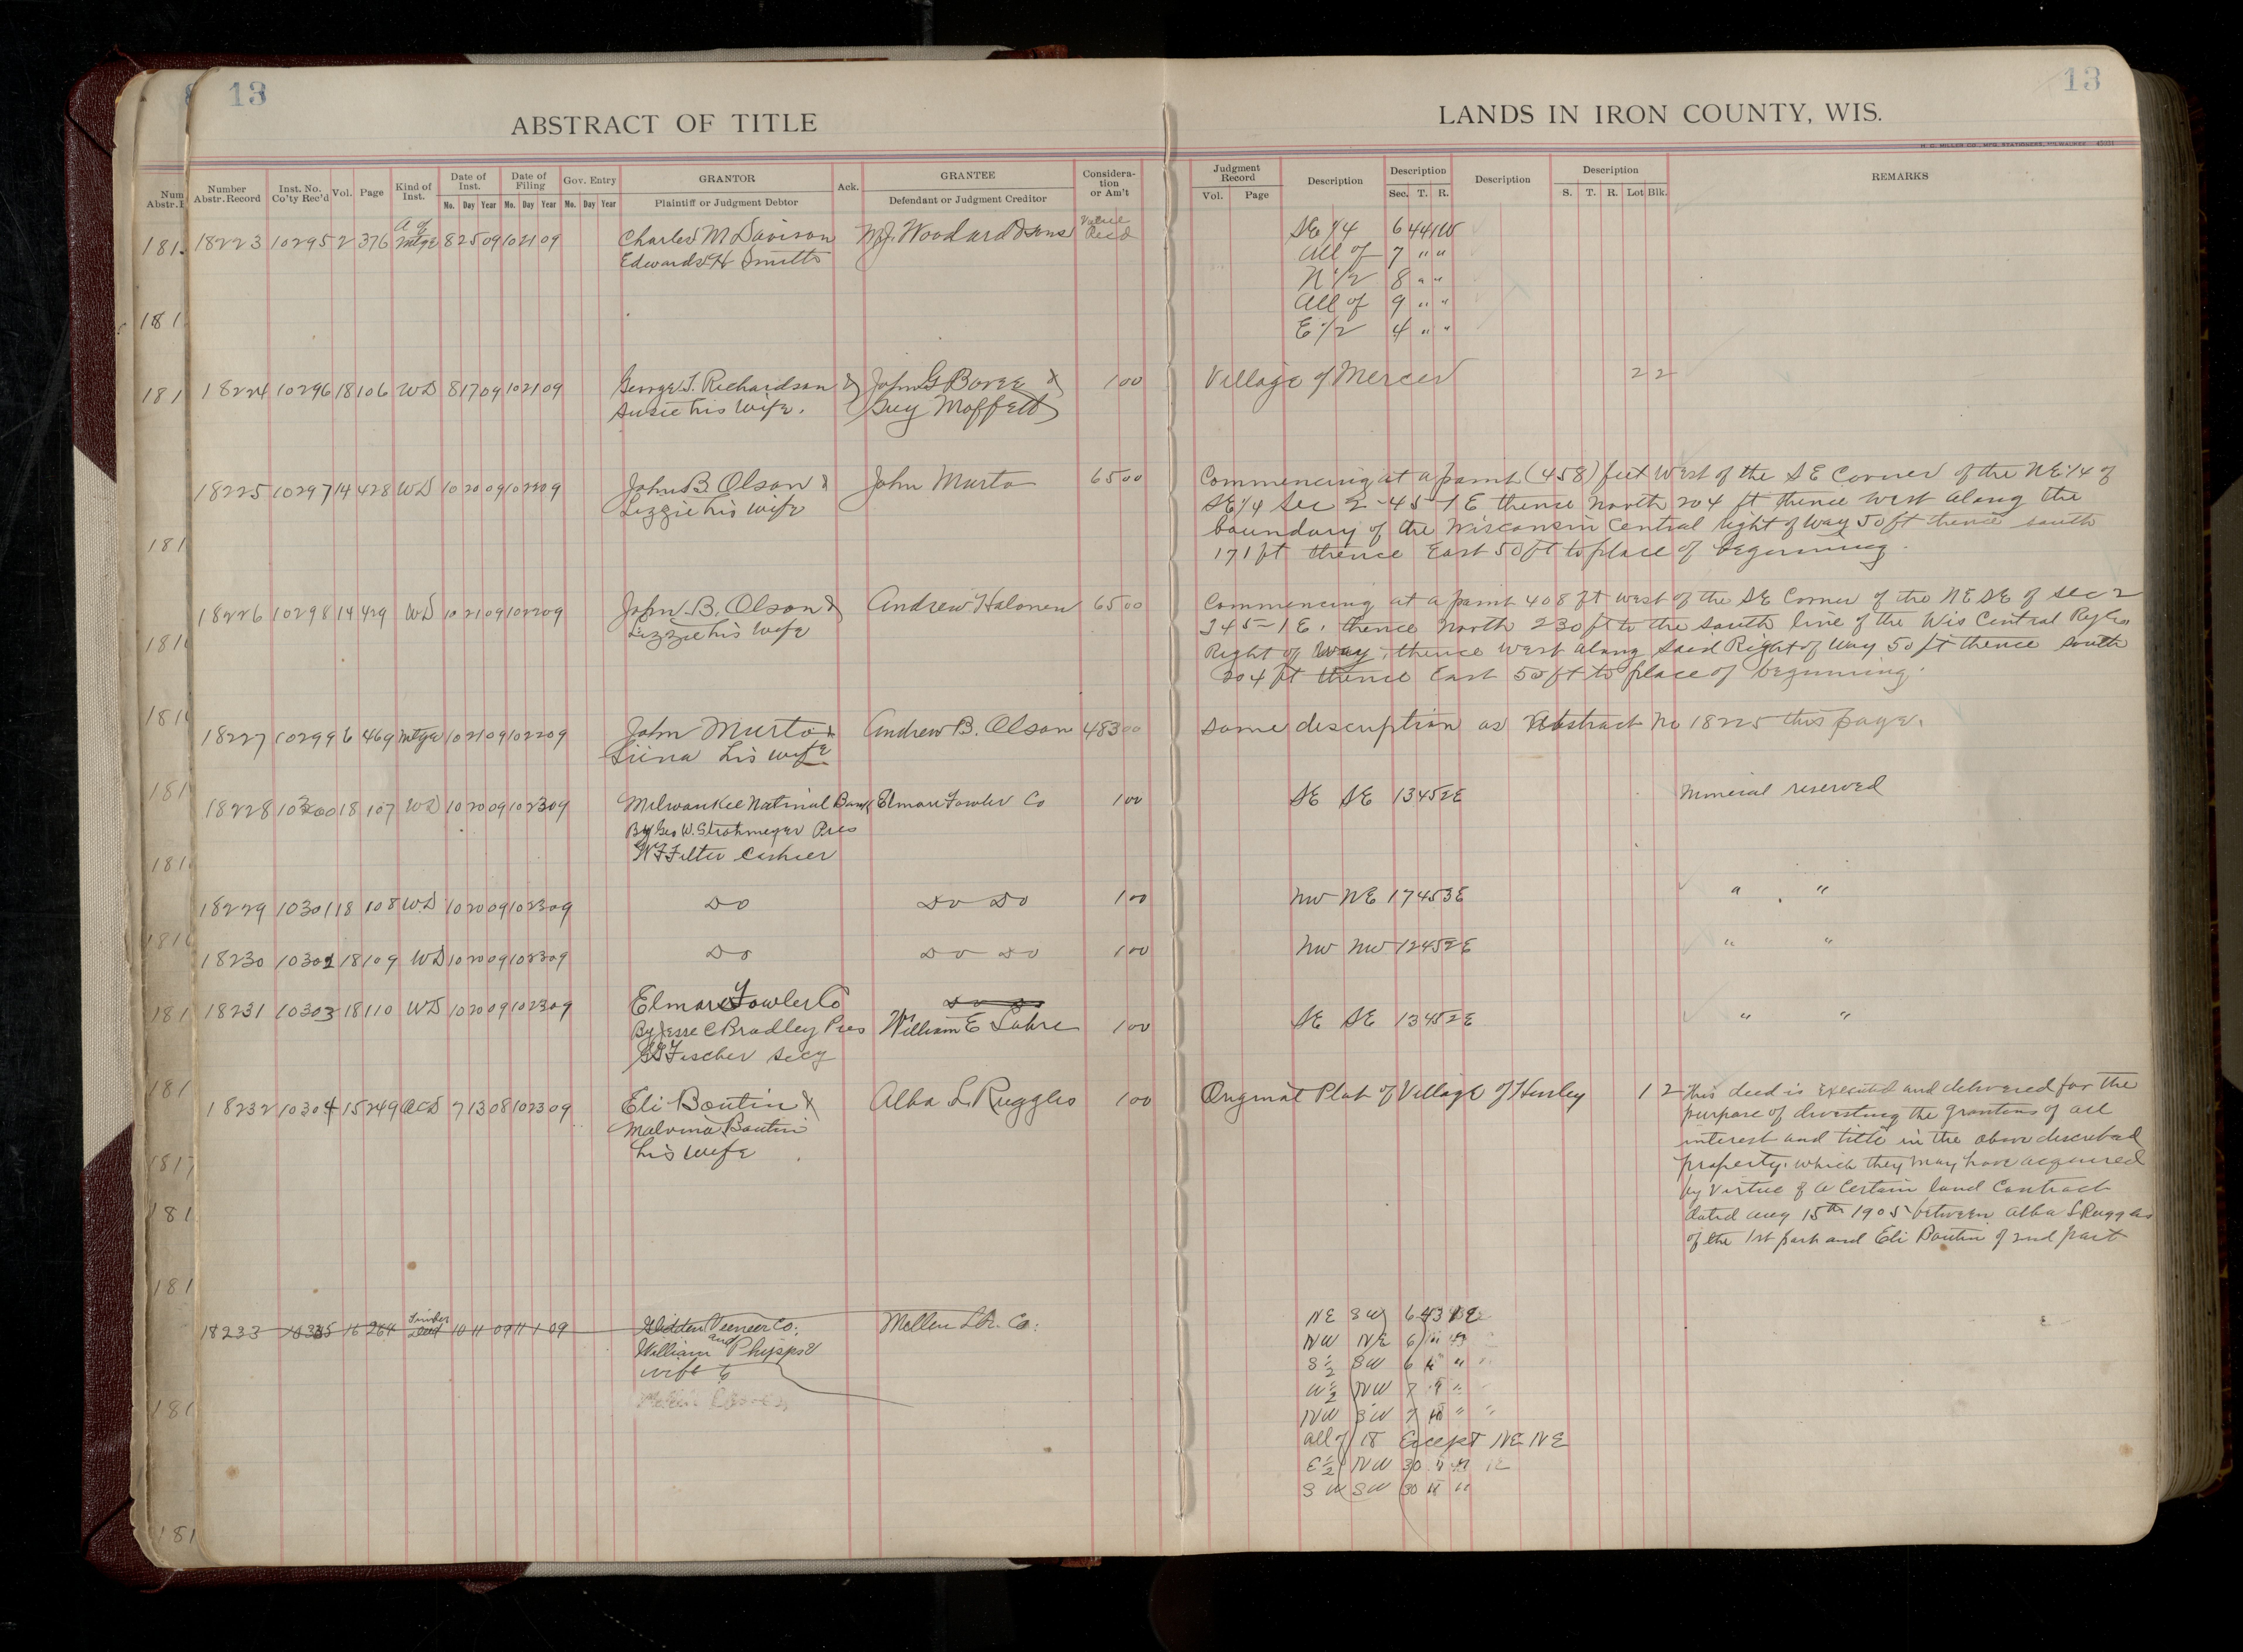 13
ABSTRACT OF TITLE
Number Abstr. Record
Inst. No. Co'ty Rec'd
Vol.
Page
Kind of Inst.
Date of Inst.
Mo. Day Year
Date of Filing
Mo. Day Year
Gov. Entry
Mo. Day Year
GRANTOR
Plaintiff or Judgment Debtor
Ack.
GRANTEE
Defendant or Judgment Creditor
Considera-tion or Am't
18223 10295 2 376 A of Mtge 8 25 09 10 21 09 Charles M Davison W.J. Woodard & Sons Value Rec'd
Edward H Smith
18224 10296 18 106 WD 8 17 09 10 21 09 George T. Richardson & John G Boree & 1 00
Susie his wife. Guy Moffett
18225 10297 14 428 WD 10 20 09 10 22 09 John B. Olson & John Murto 65 00
Lizzie his wife
18226 10298 14 429 WD 10 21 09 10 22 09 John B. Olson & Andrew Halonen 65 00
Lizzie his wife
18227 10299 6 469 Mtge 10 21 09 10 22 09 John Murto & Andrew B. Olson 483 00
Liina his wife
18228 10300 18 107 WD 10 20 09 10 23 09 Milwaukee National Bank Elmore Fowler Co 1 00
By Geo W. Strohmeyer Pres
W F Filter Cashier
18229 10301 18 108 W.D 10 20 09 10 23 09 Do Do Do 1 00
18230 10302 18 109 WD 10 20 09 10 23 09 Do Do Do 1 00
18231 10303 18 110 WD 10 20 09 10 23 09 Elmore Fowler Co Do Do
By Jesse C Bradley Pres William E Luhre 1 00
Fischer Secy
18232 10304 15 249 QCD 7 13 08 10 23 09 Eli Boutin & Alba L Ruggles 1 00
Malvina Boutin
his wife
18233 10305 16 264 Timber Deed 10 11 09 11 1 09 Glidden Veneer Co. Mellen Lbr. Co.
and
William Phipps &
wife to
13
LANDS IN IRON COUNTY, WIS.
H. C. MILLER CO., MFG. STATIONERS, MILWAUKEE
Judgment Record
Vol. Page
Description
Description
Sec. T. R.
Description
Description
S. T. R. Lot Blk.
REMARKS
SE 1/4 6 44 1W
All of 7 " "
N 1/2 8 " "
All of 9 " "
E 1/2 4 " "
Village of Mercer 2 2
Commencing at a point (458) feet West of the SE Corner of the NE 1/4 of
SE 1/4 Sec 2-45-1E thence North 204 ft thence West along the
boundary of the Wisconsin Central right of way 50 ft thence south
171 ft thence East 50 ft to place of beginning.
Commencing at a point 408 ft west of the SE Corner of the NE SE of sec 2
T45-1E. thence North 230 ft to the south line of the Wis Central Ry Co
Right of Way, thence west along said Right of Way 50 ft thence south
204 ft thence East 50 ft to place of beginning.
Same description as Abstract No 18225 this page.
SE SE 13 45 2E Mineral reserved
NW NE 17 45 3E " "
NW NW 12 45 2E " "
SE SE 13 45 2E " "
Original Plat of Village of Hurley 1 2 This deed is executed and delivered for the
purpose of divesting the grantors of all
interest and title in the above described
property, which they may have acquired
by virtue of a certain land contract
dated Aug 15th 1905 between Alba L Ruggles
of the 1st part and Eli Boutin of 2nd part
NE SW 6 43 1E
NW NE 6
S 1/2 SW 6 " "
W 1/2 NW 7 " "
NW SW 7 " "
all of 18 Except NE NE
E 1/2 NW 30 1E
SW SW 30 " "